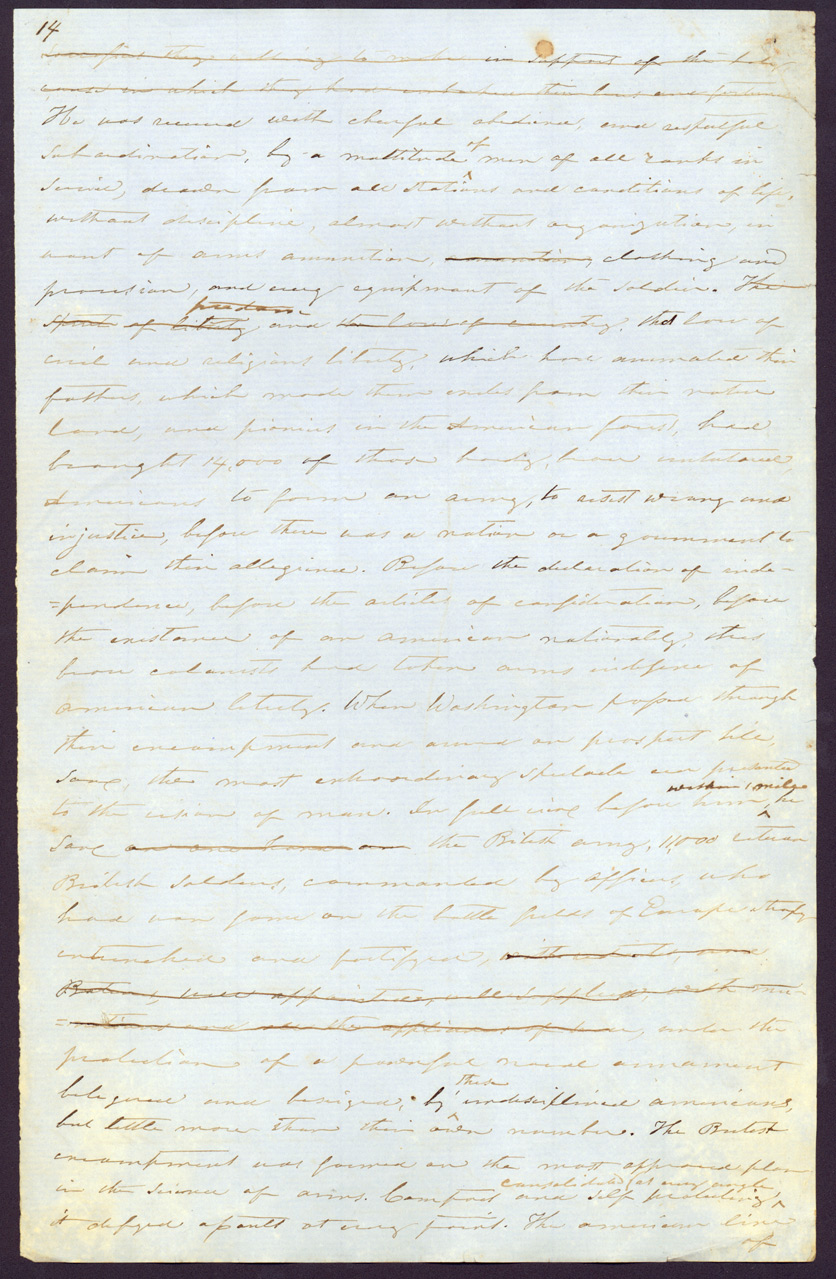 14
in support of the
cause in which they had embarked their lives and fortunes
He was received with cheerful obedience, and respectful
subordination, by a multitude of men of all ranks in
Social, drawn from all stations and conditions of life,
without discipline, almost without organization, in
want of arms amunition, ammunition, clothing and
provision, and every equipment of the soldier. The
freedom
spirit of liberty, and the love of country, the love of
civil and religious liberty, which have animated their
fathers, which made them exiles from their native
land, and pionies in the American forest, had
brought 14,000 of those hardy, brave
Americans to form an army, to resist wrong and
injustice, before there was a nation or a government to
claim their allegiance. Before the declaration of inde=
=pendence, before the articles of confideration, before
the existance of an american nationality, this
brave colonists had taken arms indefence of
american liberty. When Washington passed through
their encampment and arrived on prospect hill,
saw, the most extraordinary spectacle ever presented
within 1 mile
to the vision of man. In full view before him, he
saw the British army, 11,000 veteran
British soldiers, commanded by officers who
had won fame on the battle fields of Europe strongly
intrenched and fortifyed,
well appointed, well supplyed, with mu=
=nitions and all the appliances of war, under the
protection of a powerful naval armament
beleguered and besieged, by these undesciplined americans,
but little more than their own number. The British
encampment was formed on the most approved plan
consolidated at every angle
in the science of arms. Compact and self protecting,
it defyed assault at every point. The american line
of